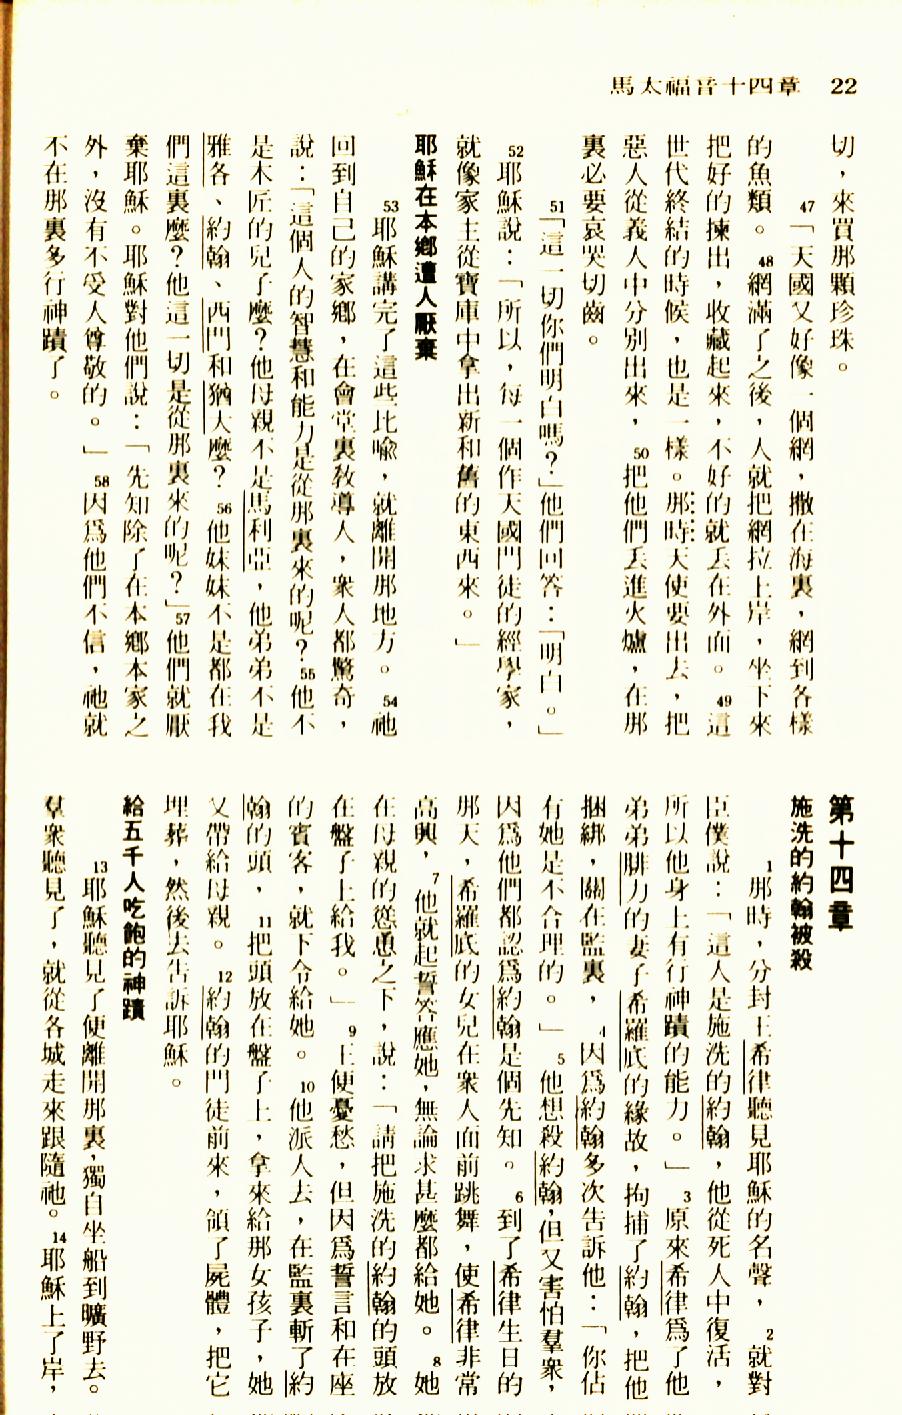 馬太福音十四章　22
切，來買那顆珍珠。
47「天國又好像一個網，撒在海裏，網到各樣
的魚類。48網滿了之後，人就把網拉上岸，坐下來
把好的揀出，收藏起來，不好的就丟在外面。49這
世代終結的時候，也是一樣。那時天使要出去，把
惡人從義人中分別出來，50把他們丟進火爐，在那
裏必要哀哭切齒。
51「這一切你們明白嗎？」他們回答：「明白。」
52耶穌說：「所以，每一個作天國門徒的經學家，
就像家主從寶庫中拿出新和舊的東西來。」
耶穌在本鄉遭人厭棄
53耶穌講完了這些比喻，就離開那地方。54祂
回到自己的家鄉，在會堂裏教導人，衆人都驚奇，
說：「這個人的智慧和能力是從那裏來的呢？55他不
是木匠的兒子麼？他母親不是馬利亞，他弟弟不是
雅各、約翰、西門和猶大麼？56他妹妹不是都在我
們這裏麼？他這一切是從那裏來的呢？」57他們就厭
棄耶穌。耶穌對他們說：「先知除了在本鄉本家之
外，沒有不受人尊敬的。」58因爲他們不信，祂就
不在那裏多行神蹟了。
第十四章
施洗的約翰被殺
1那時，分封王希律聽見耶穌的名聲，2就對
臣僕說：「這人是施洗的約翰，他從死人中復活，
所以他身上有行神蹟的能力。」3原來希律爲了他
弟弟腓力的妻子希羅底的緣故，拘捕了約翰，把他
捆綁，關在監裏，4因爲約翰多次告訴他：「你佔
有她是不合理的。」5他想殺約翰，但又害怕羣衆，
因爲他們都認爲約翰是個先知。6到了希律生日的
那天，希羅底的女兒在衆人面前跳舞，使希律非常
高興，7他就起誓答應她，無論求甚麼都給她。8她
在母親的慫恿之下，說：「請把施洗的約翰的頭放
在盤子上給我。」9王便憂愁，但因爲誓言和在座
的賓客，就下令給她。10他派人去，在監裏斬了約
翰的頭，11把頭放在盤子上，拿來給那女孩子，她
又帶給母親。12約翰的門徒前來，領了屍體，把它
埋葬，然後去告訴耶穌。
給五千人吃飽的神蹟
13耶穌聽見了便離開那裏，獨自坐船到曠野去。
羣衆聽見了，就從各城走來跟隨祂。14耶穌上了岸，